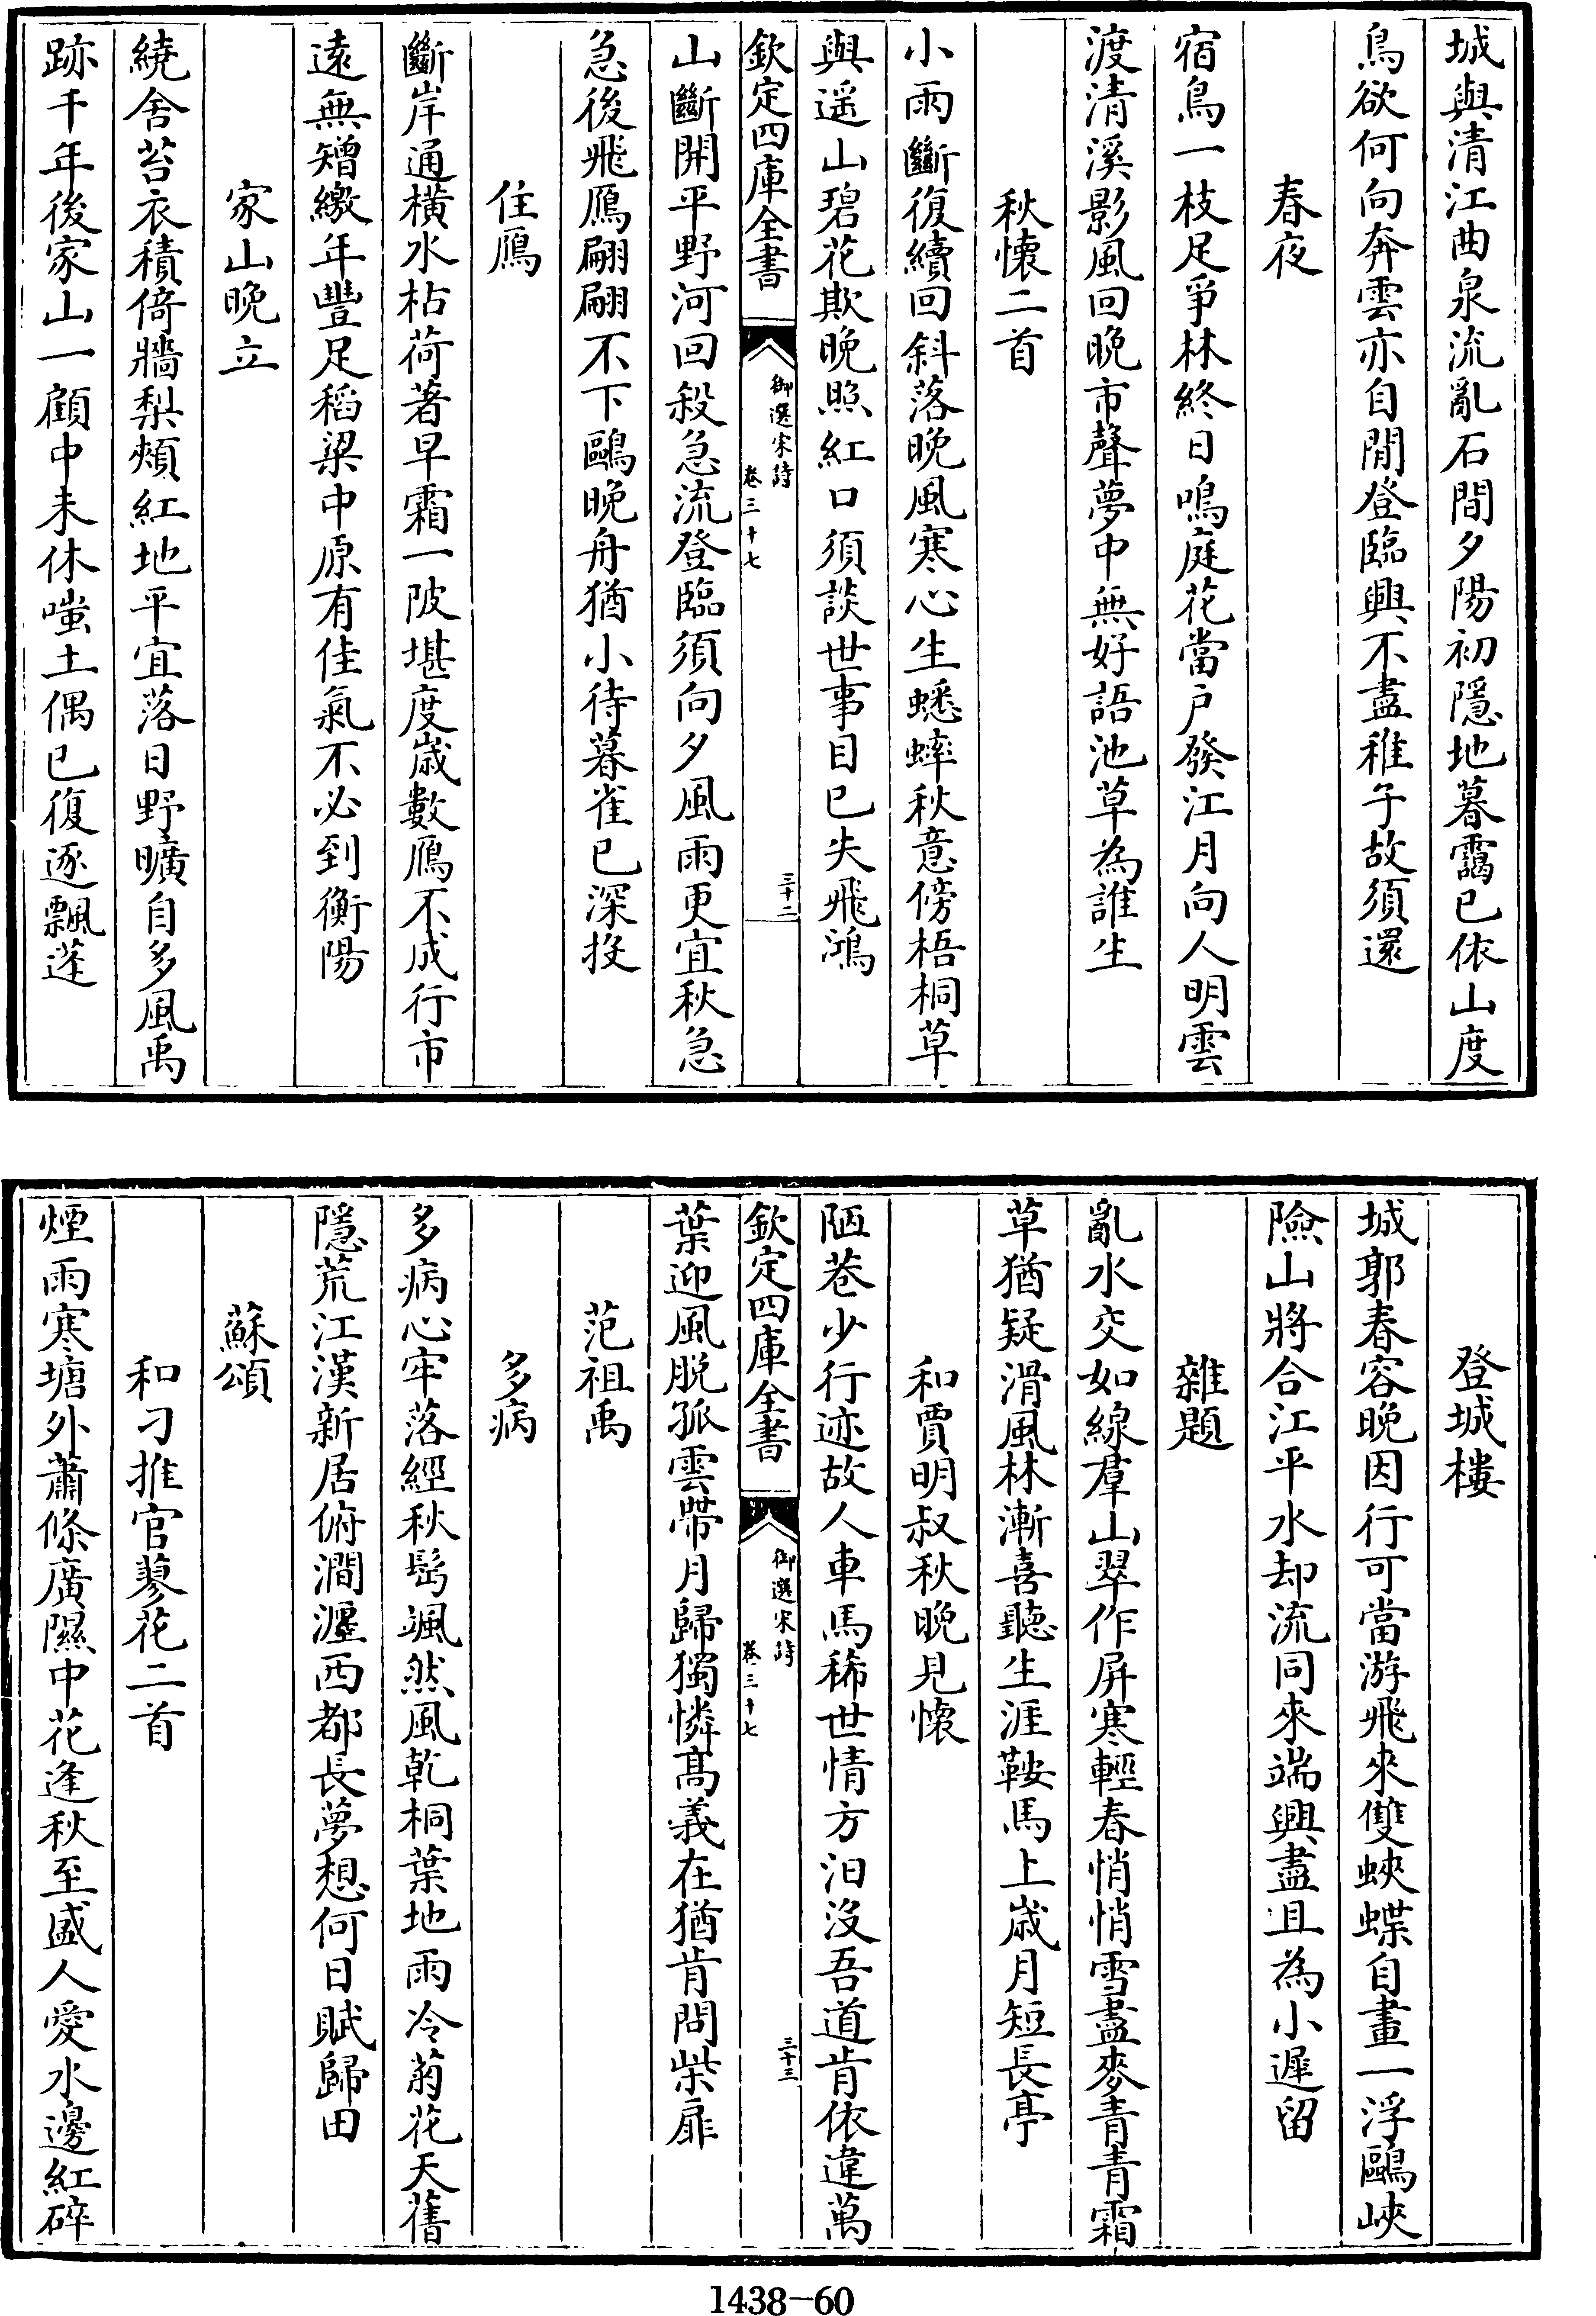 城與清江曲泉流亂石間夕陽初隱地暮靄已依山度
鳥欲何向奔雲亦自閒登臨興不盡稚子故須還
春夜
宿鳥一枝足爭林終日鳴庭花當户發江月向人明雲
渡清溪影風回晚市聲夢中無好語池草為誰生
秋懷二首
小雨斷復續回斜落晚風寒心生蟋蟀秋意傍梧桐草
與遥山碧花欺晚照紅口須談世事目已失飛鴻
欽定四庫全書
御選宋詩
卷三十七
三十二
山斷開平野河回殺急流登臨須向夕風雨更宜秋急
急後飛鴈翩翩不下鷗晚舟猶小待暮雀已深投
住鴈
斷岸通橫水枯荷著早霜一陂堪度歲數鴈不成行市
遠無矰繳年豐足稻粱中原有佳氣不必到衡陽
家山晚立
繞舍苔衣積倚牆梨頰紅地平宜落日野曠自多風禹
跡千年後家山一顧中未休嗤土偶已復逐飄蓬
登城樓
城郭春容晚因行可當游飛來雙蛺蝶自畫一浮鷗峽
險山將合江平水却流同來端興盡且為小遲留
雜題
亂水交如線羣山翠作屏寒輕春悄悄雪盡麥青青霜
草猶疑滑風林漸喜聽生涯鞍馬上歲月短長亭
和賈明叔秋晚見懷
陋巷少行迹故人車馬稀世情方汩沒吾道肯依違萬
欽定四庫全書
御選宋詩
卷三十七
三十三
葉迎風脱孤雲帶月歸獨憐髙義在猶肯問柴扉
范祖禹
多病
多病心牢落經秋髩颯然風乾桐葉地雨冷菊花天舊
隱荒江漢新居俯澗瀍西都長夢想何日賦歸田
蘇頌
和刁推官蓼花二首
煙雨寒塘外蕭條廣隰中花逢秋至盛人愛水邊紅碎
1438-60